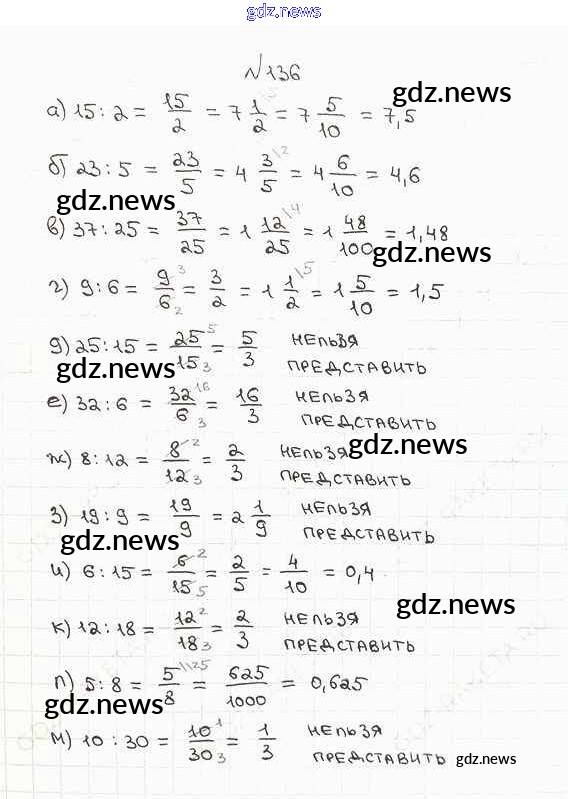 gdz.news
№136
gdz.news
а) 15 : 2 = 15/2 = 7 1/2 = 7 5/10 = 7,5
б) 23 : 5 = 23/5 = 4 3/5 \2 = 4 6/10 = 4,6
gdz.news
в) 37 : 25 = 37/25 = 1 12/25 \4 = 1 48/100 = 1,48
gdz.news
г) 9 : 6 = 9/6 3 2 = 3/2 = 1 1/2 \5 = 1 5/10 = 1,5
д) 25 : 15 = 25/15 5 3 = 5/3 НЕЛЬЗЯ
ПРЕДСТАВИТЬ
gdz.news
е) 32 : 6 = 32/6 16 3 = 16/3 НЕЛЬЗЯ
ПРЕДСТАВИТЬ
ж) 8 : 12 = 8/12 2 3 = 2/3 НЕЛЬЗЯ
ПРЕДСТАВИТЬ
gdz.news
з) 19 : 9 = 19/9 = 2 1/9 НЕЛЬЗЯ
ПРЕДСТАВИТЬ
gdz.news
и) 6 : 15 = 6/15 2 5 = 2/5 = 4/10 = 0,4
gdz.news
к) 12 : 18 = 12/18 2 3 = 2/3 НЕЛЬЗЯ
ПРЕДСТАВИТЬ
л) 5 : 8 = 5/8 \125 = 625/1000 = 0,625
gdz.news
м) 10 : 30 = 10/30 1 3 = 1/3 НЕЛЬЗЯ
ПРЕДСТАВИТЬ
gdz.news